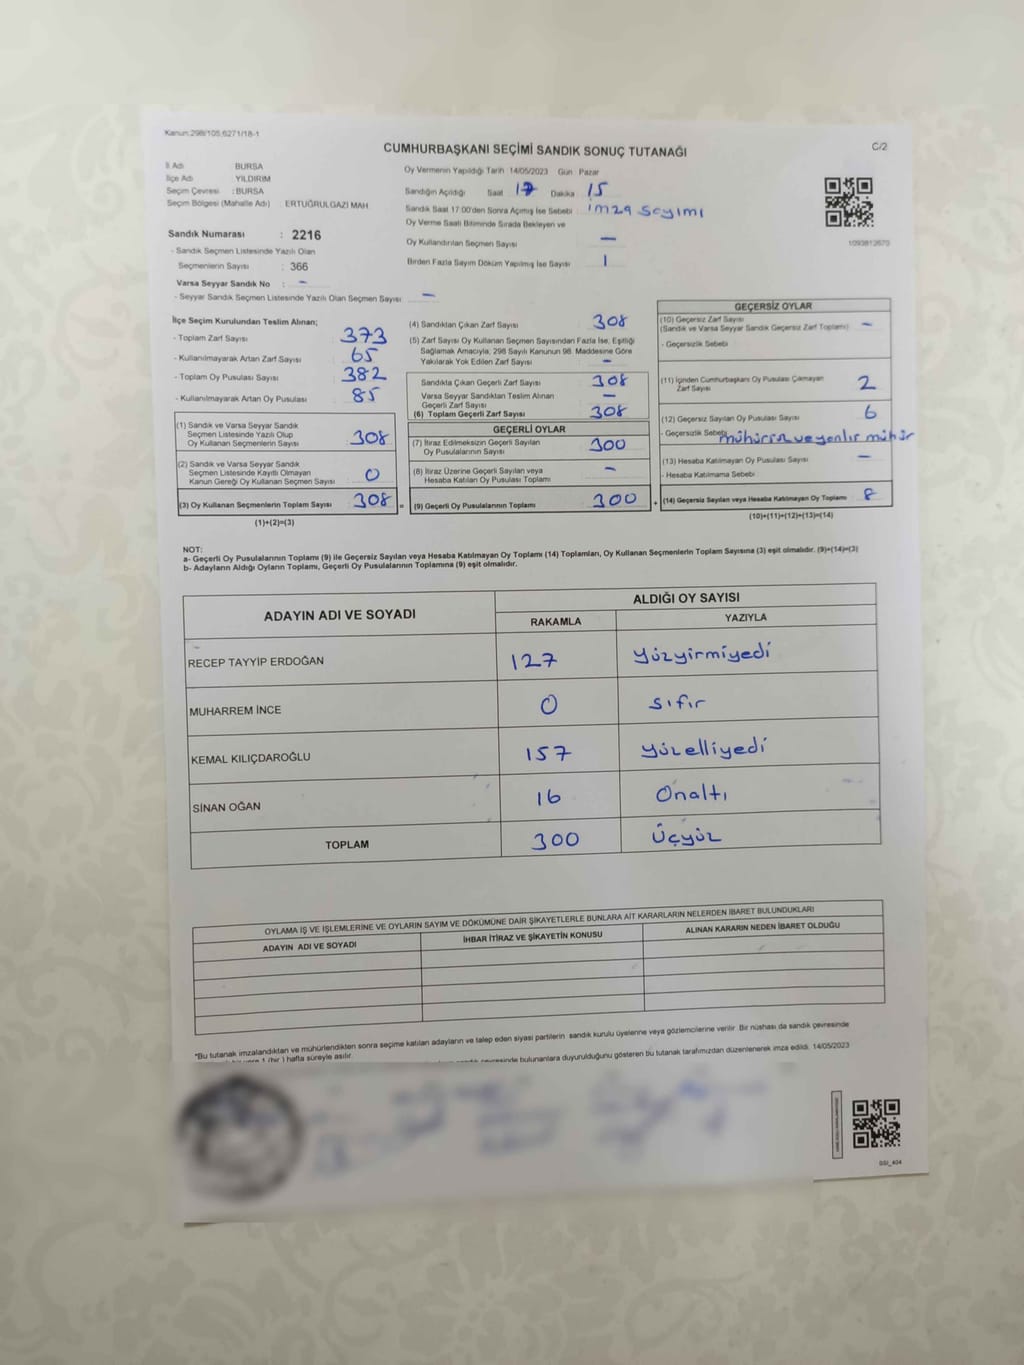 Kanun:298/105,6271/18-1
C/2
CUMHURBAŞKANI SEÇİMİ SANDIK SONUÇ TUTANAĞI
İl Adı BURSA
İlçe Adı YILDIRIM
Seçim Çevresi : BURSA
Seçim Bölgesi (Mahalle Adı) : ERTUĞRULGAZİ MAH
Sandık Numarası : 2216
- Sandık Seçmen Listesinde Yazılı Olan
Seçmenlerin Sayısı : 366
Varsa Seyyar Sandık No : -
- Seyyar Sandık Seçmen Listesinde Yazılı Olan Seçmen Sayısı : -
Oy Vermenin Yapıldığı Tarih 14/05/2023 Gün Pazar
Sandığın Açıldığı Saat 17 Dakika 15
Sandık Saat 17:00'den Sonra Açılmış İse Sebebi : imza sayımı
Oy Verme Saati Bitiminde Sırada Bekleyen ve
Oy Kullandırılan Seçmen Sayısı -
Birden Fazla Sayım Döküm Yapılmış İse Sayısı 1
1093812670
İlçe Seçim Kurulundan Teslim Alınan;
- Toplam Zarf Sayısı 373
- Kullanılmayarak Artan Zarf Sayısı 65
- Toplam Oy Pusulası Sayısı 382
- Kullanılmayarak Artan Oy Pusulası 85
(1) Sandık ve Varsa Seyyar Sandık
Seçmen Listesinde Yazılı Olup
Oy Kullanan Seçmenlerin Sayısı 308
(2) Sandık ve Varsa Seyyar Sandık
Seçmen Listesinde Kayıtlı Olmayan
Kanun Gereği Oy Kullanan Seçmen Sayısı 0
(3) Oy Kullanan Seçmenlerin Toplam Sayısı 308 =
(1)+(2)=(3)
(4) Sandıktan Çıkan Zarf Sayısı 308
(5) Zarf Sayısı Oy Kullanan Seçmen Sayısından Fazla İse, Eşitliği
Sağlamak Amacıyla, 298 Sayılı Kanunun 98. Maddesine Göre
Yakılarak Yok Edilen Zarf Sayısı -
Sandıkta Çıkan Geçerli Zarf Sayısı 308
Varsa Seyyar Sandıktan Teslim Alınan
Geçerli Zarf Sayısı -
(6) Toplam Geçerli Zarf Sayısı 308
GEÇERLİ OYLAR
(7) İtiraz Edilmeksizin Geçerli Sayılan
Oy Pusulalarının Sayısı 300
(8) İtiraz Üzerine Geçerli Sayılan veya
Hesaba Katılan Oy Pusulası Toplamı -
(9) Geçerli Oy Pusulalarının Toplamı 300 +
GEÇERSİZ OYLAR
(10) Geçersiz Zarf Sayısı
(Sandık ve Varsa Seyyar Sandık Geçersiz Zarf Toplamı) -
- Geçersizlik Sebebi
(11) İçinden Cumhurbaşkanı Oy Pusulası Çıkmayan
Zarf Sayısı 2
(12) Geçersiz Sayılan Oy Pusulası Sayısı 6
- Geçersizlik Sebebi mühürsüz ve yanlış mühür
(13) Hesaba Katılmayan Oy Pusulası Sayısı -
- Hesaba Katılmama Sebebi
(14) Geçersiz Sayılan veya Hesaba Katılmayan Oy Toplamı 8
(10)+(11)+(12)+(13)=(14)
NOT:
a- Geçerli Oy Pusulalarının Toplamı (9) ile Geçersiz Sayılan veya Hesaba Katılmayan Oy Toplamı (14) Toplamları, Oy Kullanan Seçmenlerin Toplam Sayısına (3) eşit olmalıdır. (9)+(14)=(3)
b- Adayların Aldığı Oyların Toplamı, Geçerli Oy Pusulalarının Toplamına (9) eşit olmalıdır.
ADAYIN ADI VE SOYADI
ALDIĞI OY SAYISI
RAKAMLA YAZIYLA
RECEP TAYYİP ERDOĞAN 127 Yüzyirmiyedi
MUHARREM İNCE 0 Sıfır
KEMAL KILIÇDAROĞLU 157 Yüzelliyedi
SİNAN OĞAN 16 Onaltı
TOPLAM 300 Üçyüz
OYLAMA İŞ VE İŞLEMLERİNE VE OYLARIN SAYIM VE DÖKÜMÜNE DAİR ŞİKAYETLERLE BUNLARA AİT KARARLARIN NELERDEN İBARET BULUNDUKLARI
ADAYIN ADI VE SOYADI İHBAR İTİRAZ VE ŞİKAYETİN KONUSU ALINAN KARARIN NEDEN İBARET OLDUĞU
*Bu tutanak imzalandıktan ve mühürlendikten sonra seçime katılan adayların ve talep eden siyasi partilerin sandık kurulu üyelerine veya gözlemcilerine verilir. Bir nüshası da sandık çevresinde
1 (bir) hafta süreyle asılır.
çevresinde bulunanlara duyurulduğunu gösteren bu tutanak tarafımızdan düzenlenerek imza edildi. 14/05/2023